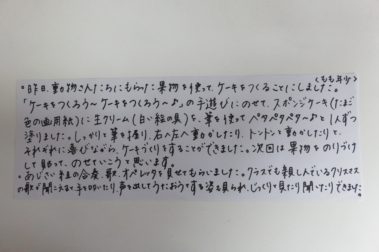 (もも年少)
。昨日、動物さんたちにもらった果物を使って、ケーキをつくることにしました。
「ケーキをつくろう～ケーキをつくろう～♪」の手遊びにのせて、スポンジケーキ(たまご
色の画用紙)に生クリーム(白い絵の具)を、筆を使って"ペタペタペタ～♪"と1人ずつ
塗りました。しっかりと筆を握り、右へ左へ動かしたり、トントンと動かしたりと、
それぞれに喜びながら、ケーキづくりをすることができました。次回は果物をのりづけ
して貼って、のせていこうと思います。
。あじさい組の合奏、歌、オペレッタを見せてもらいました。クラスでも親しんでいるクリスマス
の歌が聞こえると手を叩いたり、声を出してうたおうとする姿も見られ、じっくりと見たり聞いたりできました。